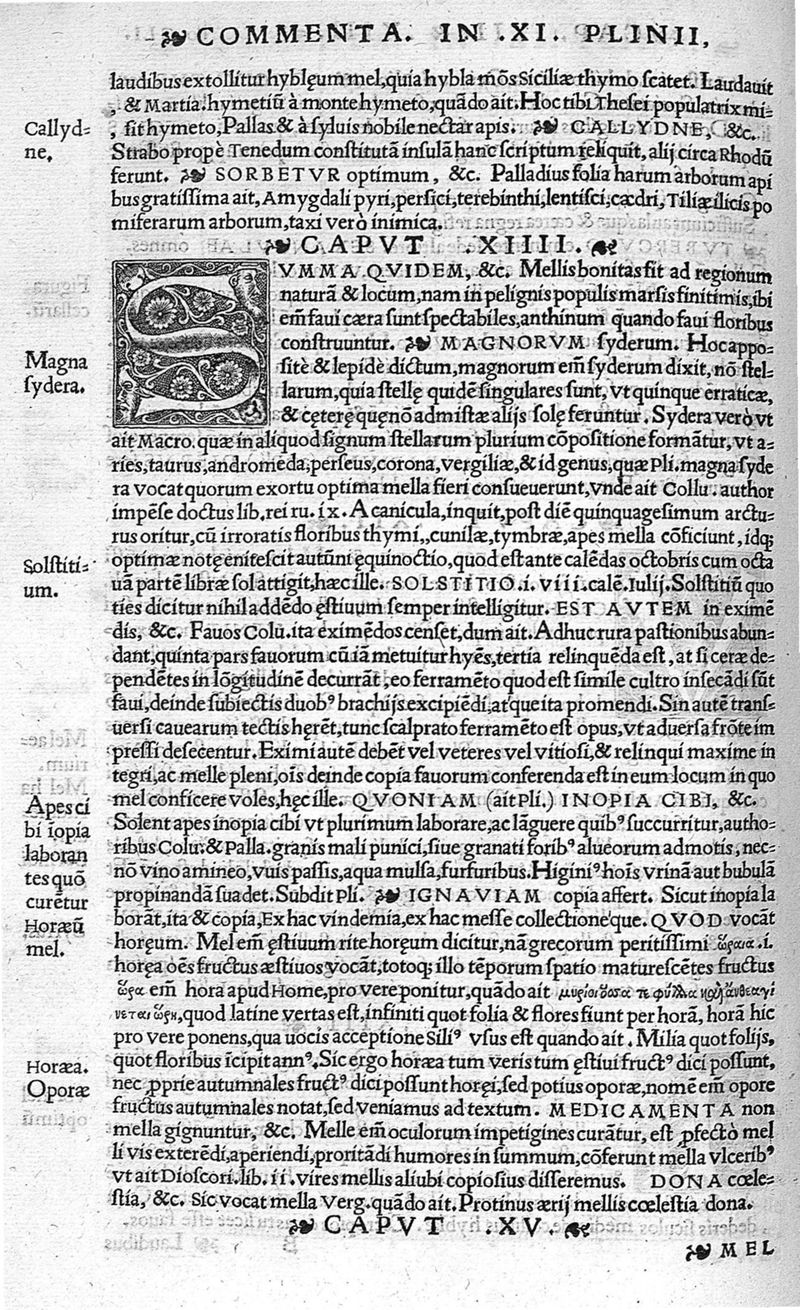 COMMENTA. IN .XI. PLINII,
laudibus extollitur hyblęum mel, quia hybla mōs Siciliæ thymo scatet. Laudauit
, & Martia. hymetiū à monte hymeto, quādo ait. Hoc tibi Thesei populatrix mi-
, sit hymeto, Pallas & à syluis nobile nectar apis. CALLYDNE, &c.
Callyd=
ne,
Strabo propè Tenedum constitutā insulā hanc scriptum reliquit, alij circa Rhodū
ferunt. SORBETVR optimum, &c. Palladius folia harum arborum api
bus gratissima ait, Amygdali pyri, persici, terebinthi, lentisci, cædri, Tiliæ ilicis po
miferarum arborum, taxi verò inimica.
CAPVT .XIIII.
SVMMA QVIDEM, &c. Mellis bonitas fit ad regionum
naturā & locum, nam in pelignis populis marsis finitimis, ibi
em̄ faui cæra sunt spectabiles, anthinum quando faui floribus
construuntur. MAGNORVM syderum. Hoc appo-
Magna
sydera.
sitè & lepidè dictum, magnorum em̄ syderum dixit, nō stel-
larum, quia stellę quidē singulares sunt, vt quinque erraticæ,
& cęterę quę nō admistæ alijs solę feruntur. Sydera verò vt
ait Macro. quæ in aliquod signum stellarum plurium cōpositione formātur, vt a-
ries, taurus, andromeda, perseus, corona, vergiliæ, & id genus, quæ Pli. magna syde
ra vocat quorum exortu optima mella fieri consueuerunt, vnde ait Collu. author
impēse doctus lib. rei ru. ix. A canicula, inquit, post diē quinquagesimum arctu-
rus oritur, cū irroratis floribus thymi,, cunilæ, tymbræ, apes mella cōficiunt, idq;
optimæ notę enitescit autūni ęquinoctio, quod est ante calēdas octobris cum octa
Solstiti-
um.
uā partē libræ sol attigit, hæc ille. SOLSTITIO .i. viii. calē. Iulij. Solstitiū quo
ties dicitur nihil addēdo ęstiuum semper intelligitur. EST AVTEM in eximē
dis, &c. Fauos Colu. ita eximēdos censet, dum ait. Adhuc rura pastionibus abun-
dant, quinta pars fauorum cū iā metuitur hyēs, tertia relinquēda est, at si ceræ de-
pendētes in lōgitudinē decurrāt, eo ferramēto quod est simile cultro insecādi sūt
faui, deinde subiectis duobꝰ brachijs excipiēdi, atque ita promendi. Sin autē trans-
uersi cauearum tectis hęrēt, tunc scalprato ferramēto est opus, vt aduersa frōte im
pressi desecentur. Eximi autē debēt vel veteres vel vitiosi, & relinqui maxime in
tegri, ac melle pleni, oīs deinde copia fauorum conferenda est in eum locum in quo
mel conficere voles, hęc ille. QVONIAM (ait Pli.) INOPIA CIBI, &c.
Apes ci
bi īopia
laboran
tes quō
curētur
Solent apes inopia cibi vt plurimum laborare, ac lāguere quibꝰ succurritur, autho-
ribus Colu. & Palla. granis mali punici, siue granati foribꝰ alueorum admotis, nec-
nō vino amineo, vuis passis, aqua mulsa, furfuribus. Higiniꝰ hoīs vrinā aut bubulā
propinandā suadet. Subdit Pli. IGNAVIAM copia affert. Sicut inopia la
borāt, ita & copia, Ex hac vindemia, ex hac messe collectione'que. QVOD vocāt
Horæū
mel.
horęum. Mel em̄ ęstiuum rite horęum dicitur, nā grecorum peritissimi ὡραια .i.
horęa oēs fructus æstiuos vocāt, totoq; illo tēporum spatio maturescētes fructus
ὥρα em̄ hora apud Home, pro vere ponitur, quādo ait μυριοι ὅσσα τε φύλλα καὶ ἄνθεα γί
νεται ὥρη, quod latine vertas est, infiniti quot folia & flores fiunt per horā, horā hic
pro vere ponens, qua uocis acceptione Siliꝰ vsus est quando ait. Milia quot folijs,
quot floribus īcipit annꝰ. Sic ergo horæa tum veris tum ęstiui fructꝰ dici possunt,
Horæa.
Oporæ
nec ꝓprie autumnales fructꝰ dici possunt horęi, sed potius oporæ, nomē em̄ opore
fructus autumnales notat, sed veniamus ad textum. MEDICAMENTA non
mella gignuntur, &c. Melle em̄ oculorum impetigines curātur, est ꝓfectò mel
li vis exterēdi, aperiendi, proritādi humores in summum, cōferunt mella vlceribꝰ
vt ait Dioscori. lib. ii. vires mellis aliubi copiosius disseremus. DONA cœle-
stia, &c. Sic vocat mella Verg. quādo ait. Protinus aerij mellis cœlestia dona.
CAPVT .XV.
MEL